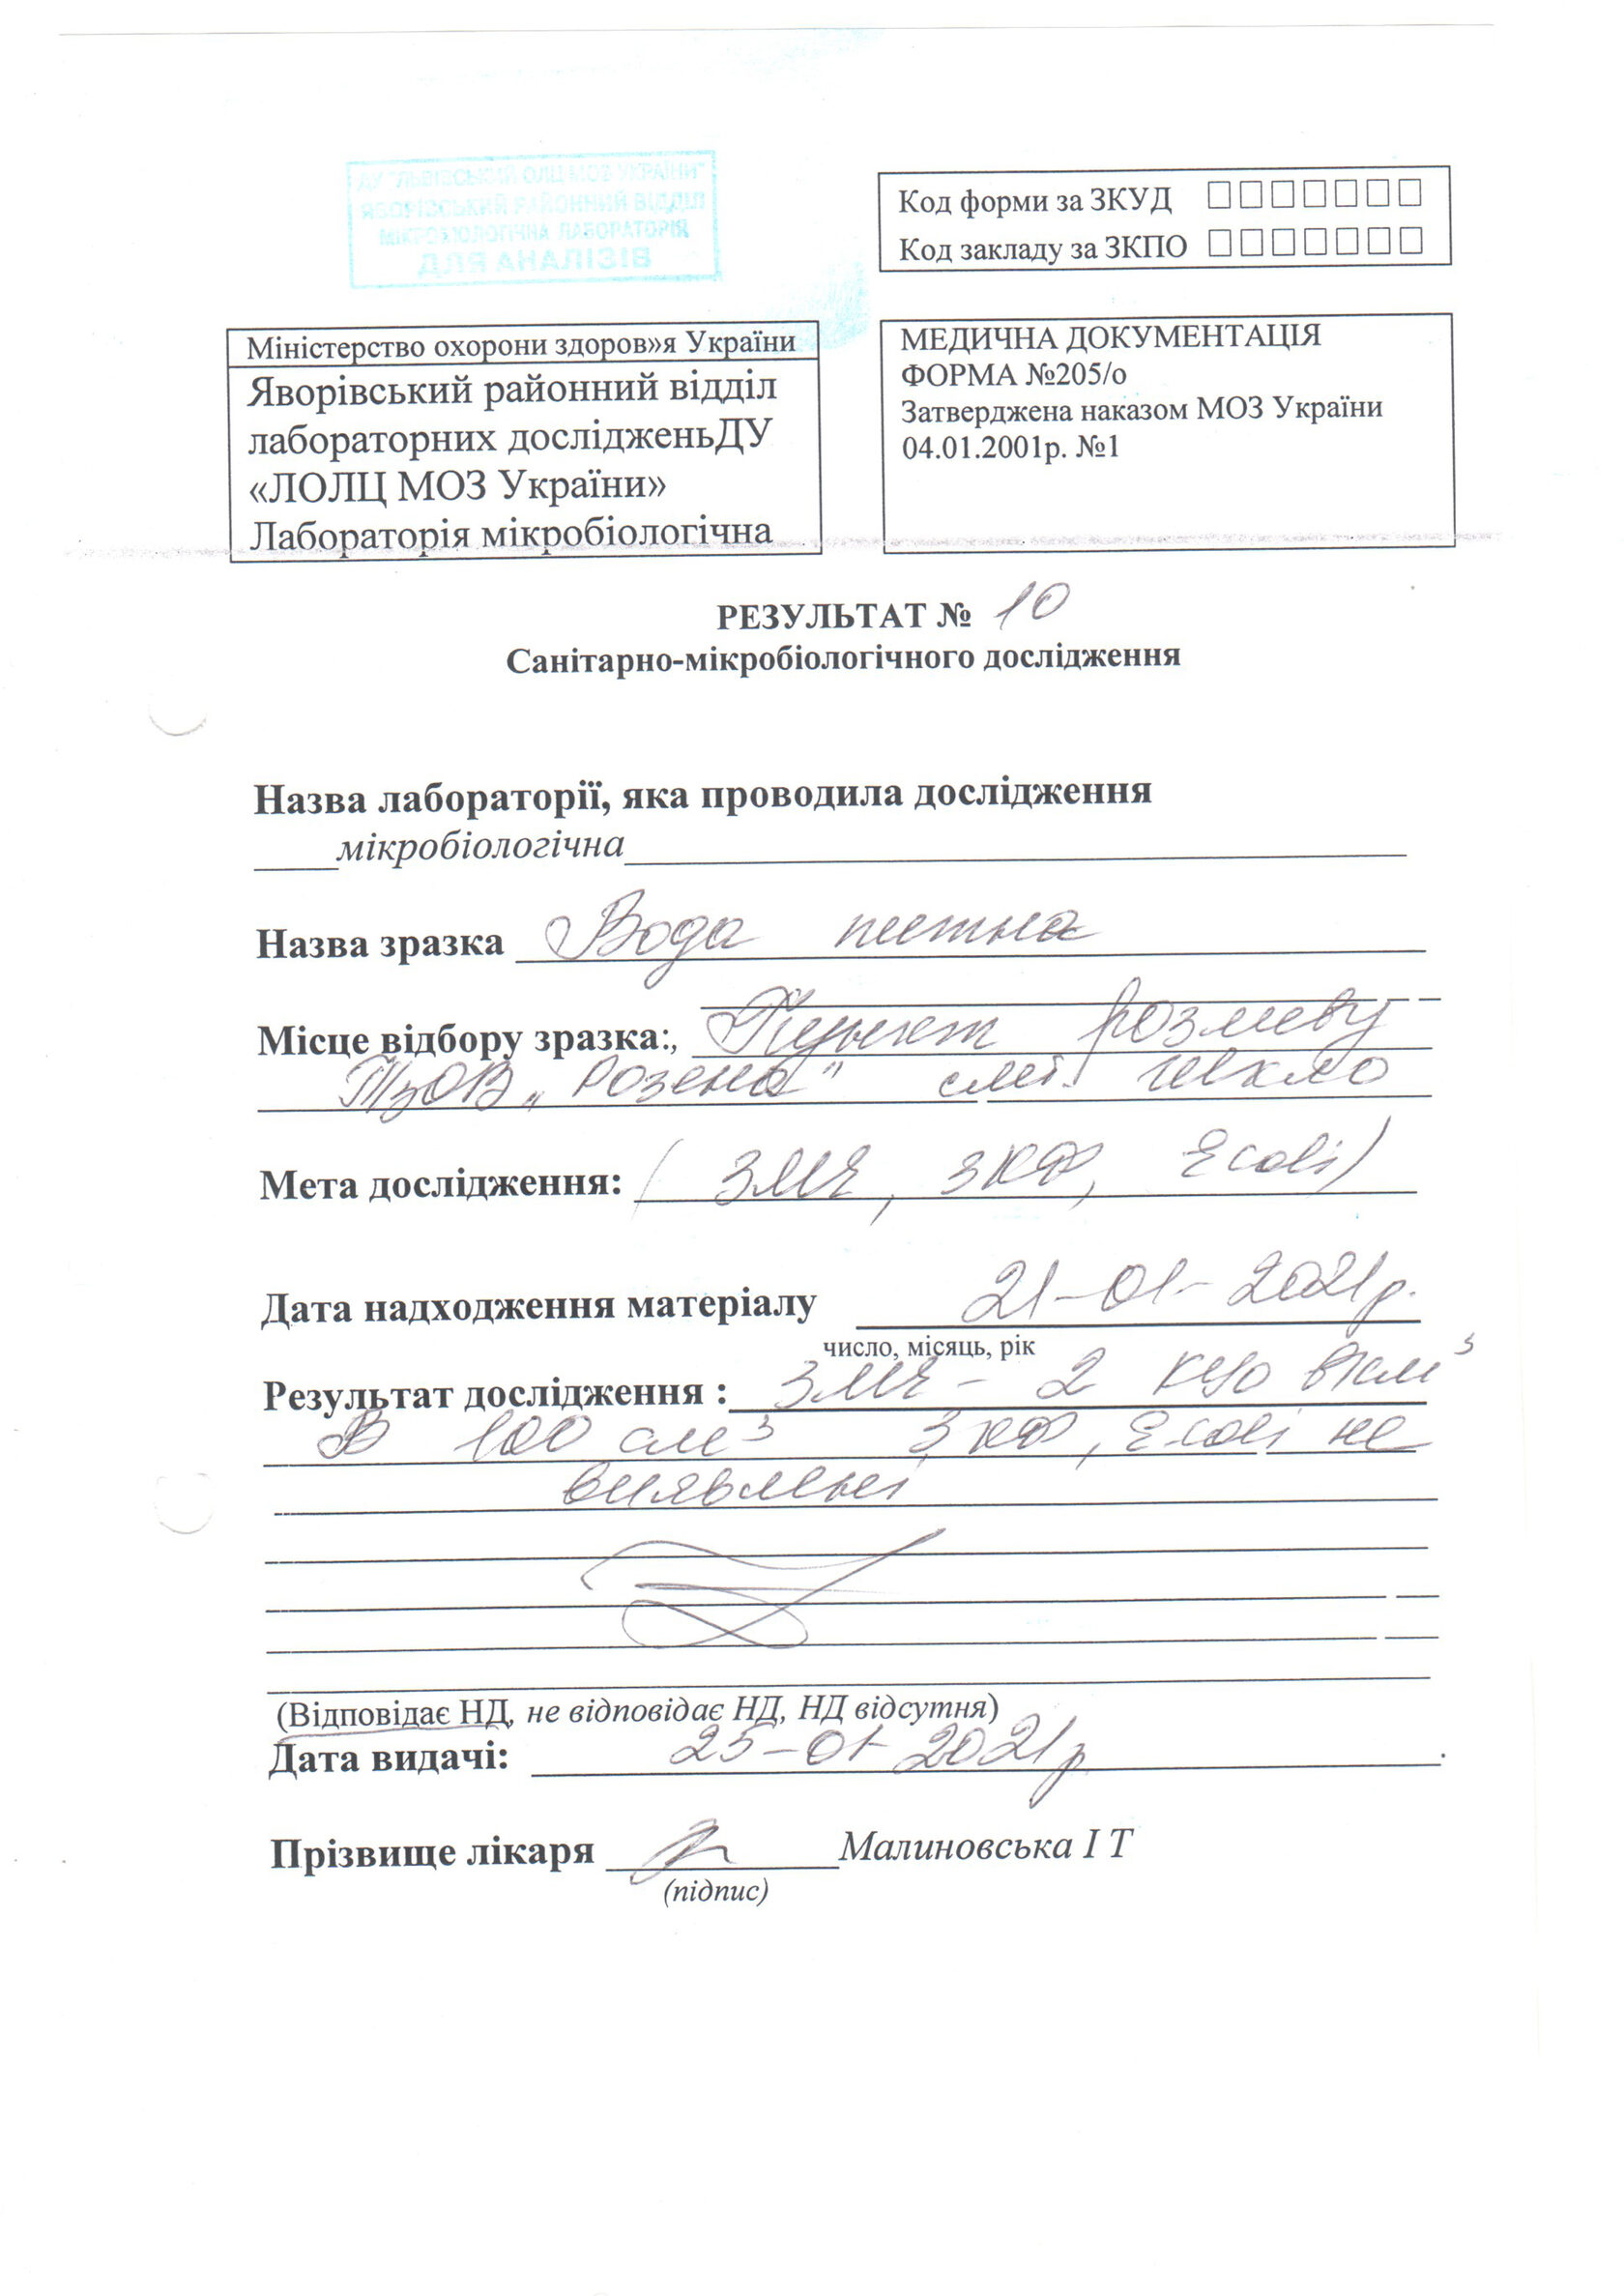 ДУ "ЛЬВІВСЬКИЙ ОЛЦ МОЗ УКРАЇНИ"
ЯВОРІВСЬКИЙ РАЙОННИЙ ВІДДІЛ
МІКРОБІОЛОГІЧНА ЛАБОРАТОРІЯ
ДЛЯ АНАЛІЗІВ
Код форми за ЗКУД
Код закладу за ЗКПО
Міністерство охорони здоров»я України
Яворівський районний відділ
лабораторних дослідженьДУ
«ЛОЛЦ МОЗ України»
Лабораторія мікробіологічна
МЕДИЧНА ДОКУМЕНТАЦІЯ
ФОРМА №205/о
Затверджена наказом МОЗ України
04.01.2001р. №1
РЕЗУЛЬТАТ № 10
Санітарно-мікробіологічного дослідження
Назва лабораторії, яка проводила дослідження
мікробіологічна
Назва зразка Вода питна
Місце відбору зразка:, Пункт розливу
ТзОВ „Розена" смт.
Мета дослідження: (ЗМЧ, ЗКФ, Ecoli)
Дата надходження матеріалу 21-01-2021р.
число, місяць, рік
Результат дослідження : ЗМЧ - 2 КУО в 1см³
В 100 см³ ЗКФ, E.coli не
виявлені
(Відповідає НД, не відповідає НД, НД відсутня)
Дата видачі: 25-01-2021р.
Прізвище лікаря Малиновська І Т
(підпис)